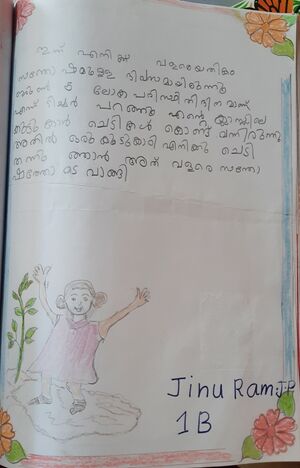 ഇന്ന് എനിക്കു വളരെയധികം
സന്തോഷമുള്ള ദിവസമായിരുന്നു
ജൂൺ 5 ലോക പരിസ്ഥിതി ദിനമാണ്
എന്ന് ടീച്ചർ പറഞ്ഞു എന്റെ ക്ലാസ്സിലെ
കൂട്ടുകാർ ചെടികൾ കൊണ്ട് വന്നിരുന്നു
അതിൽ ഒരു കൂട്ടുകാരി എനിക്കു ചെടി
തന്നു ഞാൻ അത് വളരെ സന്തോ
ഷത്തോടെ വാങ്ങി
Jinu Ram.J.P
1B